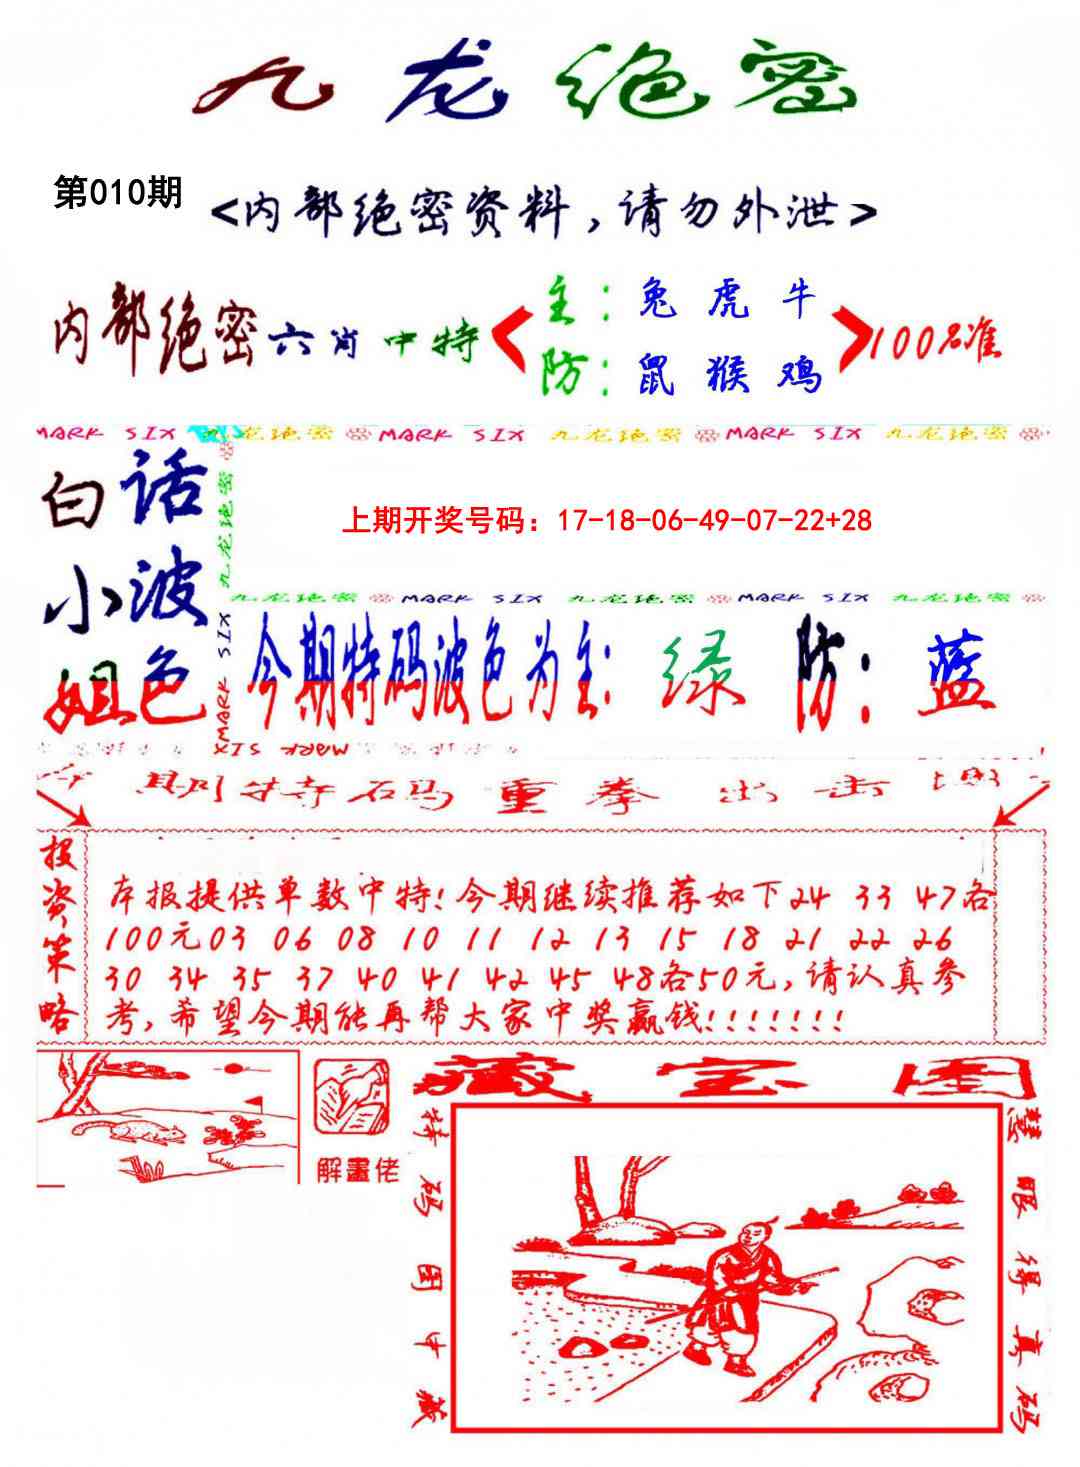 九龙绝密
第010期
<内部绝密资料,请勿外泄>
内部绝密六肖中特
主: 兔 虎 牛
防: 鼠 猴 鸡
100%准
MARK SIX 九龙绝密 MARK SIX 九龙绝密 MARK SIX 九龙绝密
白话
小波
姐色
九龙绝密
MARK SIX
上期开奖号码：17-18-06-49-07-22+28
九龙绝密 MARK SIX 九龙绝密 MARK SIX 九龙绝密
今期特码波色为主: 绿 防: 蓝
MARK SIX
期特码重拳出击
投资策略
本报提供单数中特!今期继续推荐如下24 33 47各
100元03 06 08 10 11 12 13 15 18 21 22 26
30 34 35 37 40 41 42 45 48各50元,请认真参
考,希望今期能再帮大家中奖赢钱!!!!!!!
解畫佬
藏宝图
特码图中藏
慧眼得真码